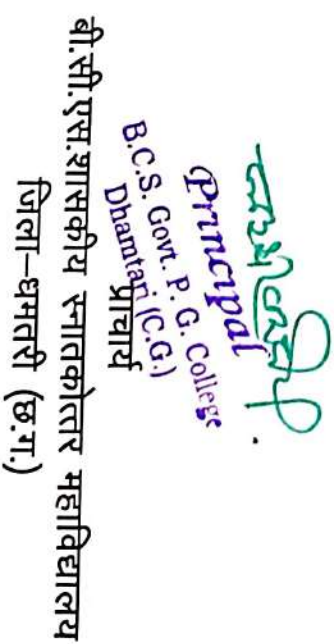 Principal
B.C.S. Govt. P. G. College
Dhamtari (C.G.)
प्राचार्य
बी.सी.एस.शासकीय स्नातकोत्तर महाविद्यालय
जिला-धमतरी (छ.ग.)